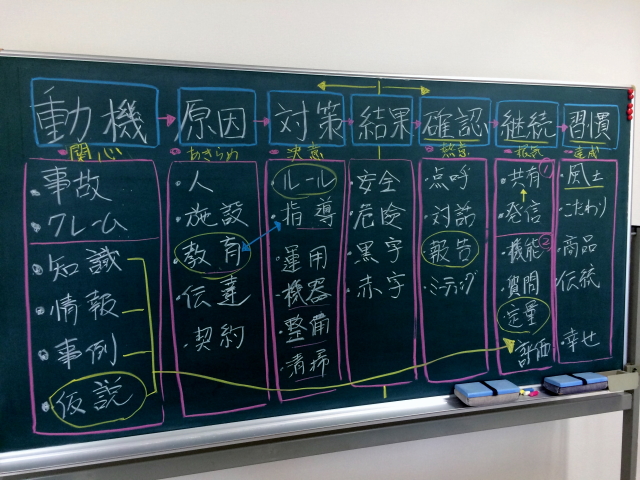 動機
原因
対策
結果
確認
継続
習慣
関心
あきらめ
決意
熱意
達成
事故
クレーム
知識
情報
事例
仮説
人
施設
教育
伝達
契約
ルール
指導
運用
機器
整備
清掃
安全
危険
黒字
赤字
点呼
対話
報告
ミーティング
共有①
発信
機能②
質問
定量
評価
風土
こだわり
商品
伝統
幸せ